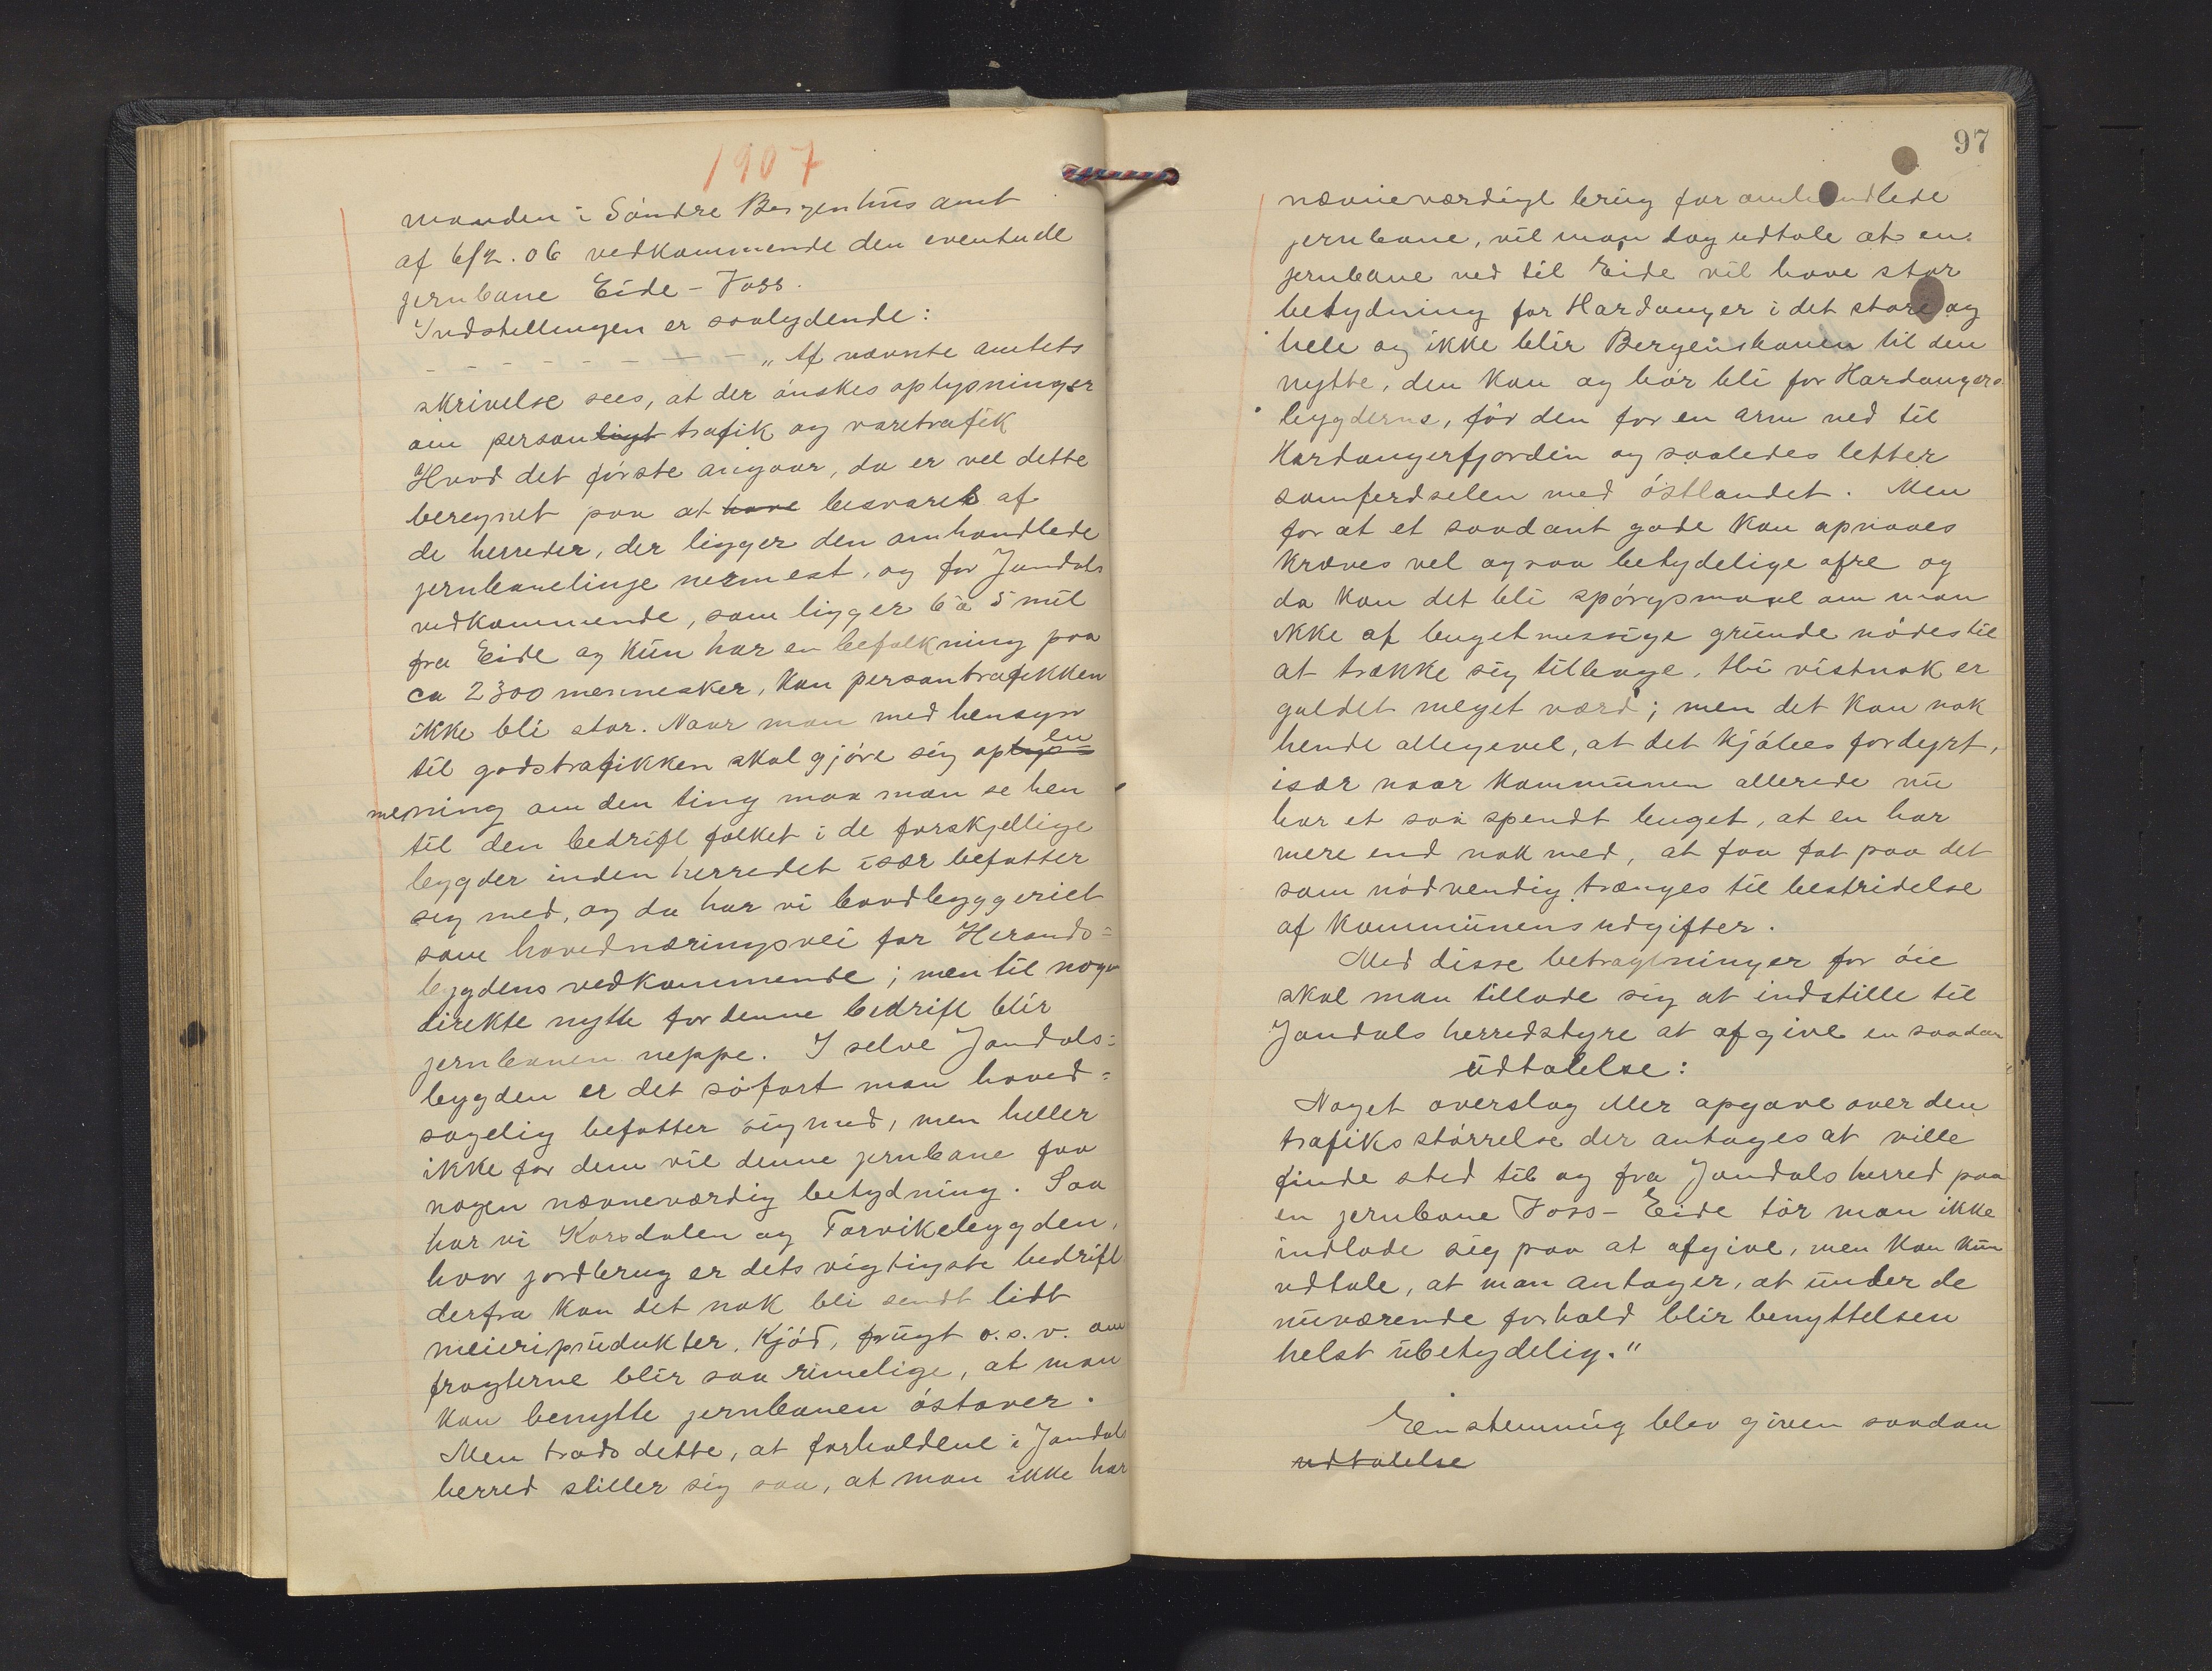 1907
manden i Söndre Bergenhus amt
af 6/2.06 vedkommende den eventuell
jernbane Eide - Voss.
Indstillingen er saalydende:
- - - - - - - - „Af nævnte amtets
skrivelse sees, at der ønskes oplysninger
om personligt trafik og varetrafik
Hvad det første angaar, da er vel dette
beregnet paa at have besvaret af
de herreder, der ligger den omhandlede
jernbanelinje nermest, og for Jondals
vedkommende, som ligger 6 à 5 mil
fra Eide og kun har en befolkning paa
ca 2300 mennesker, kan persontrafikken
ikke bli stor. Naar man med hensyn
til godstrafikken skal gjøre sig oplys= en
mening om den ting maa man se hen
til den bedrift folket i de forskjellige
bygder inden herredet især befatter
sig med, og da har vi baadbyggeriet
som hovednæringsvei for Herands=
bygdens vedkommende; men til nogen
direkte nytte for denne bedrift blir
jernbanen neppe. I selve Jondals=
bygden er det søfart man hoved=
sagelig befatter sig med, men heller
ikke for dem vil denne jernbane faa
nogen nævneværdig betydning. Saa
har vi Korsdalen og Torvikebygden,
hvor jordbrug er dets vigtigste bedrift
derfra kan det nok bli sendt lidt
meieriprudukter, kjød, frugt o.s.v. om
fragterne blir saa rimelige, at man
kan benytte jernbanen østover.
Men trods dette, at forholdene i Jondals
herred stiller sig saa, at man ikke har
97
nævneværdigt brug for omhandlede
jernbane, vil man dog udtale at en
jernbane ned til Eide vil have stor
betydning for Hardanger i det store og
hele og ikke blir Bergensbanen til den
nytte, den kan og bør bli for Hardangers
bygderne, før den for en arm ned til
Hardangerfjorden og saaledes letter
samferdselen med østlandet. Men
for at et saadant gode kan opnaaes
kræves vel ogsaa betydelige ofre og
da kan det bli spørgsmaal om man
ikke af bugetmessige grunde nødes til
at trække sig tilbage, thi vistnok er
guldet meget værd; men det kan nok
hende alligevel, at det kjøbes fordyrt,
især naar kommunen allerede nu
har et saa spendt buget, at en har
mere end nok med, at faa fat paa det
som nødvendig trænges til bestridelse
af kommunens udgifter.
Med disse betragtninger for øie
skal man tillade sig at indstille til
Jondals herredstyre at afgive en saadan
udtalelse:
Noget overslag eller opgave over den
trafiks størrelse der antages at ville
finde sted til og fra Jondals herred paa
en jernbane Voss - Eide tør man ikke
indlade sig paa at afgive, men kan kun
udtale, at man antager, at under de
nuværende forhold blir benyttelsen
helst ubetydelig."
Enstemmig blev given saadan
udtalelse